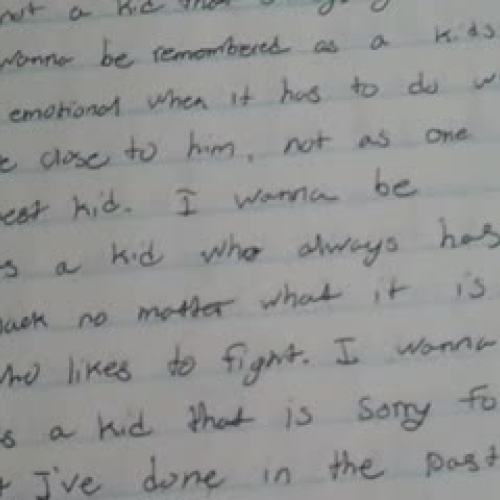 not a kid that
wanna be remembered as a kids
emotional when it has to do w
e close to him, not as one
est kid. I wanna be
s a kid who always has
back no matter what it is
who likes to fight. I wanna
s a kid that is sorry fo
t I've done in the past